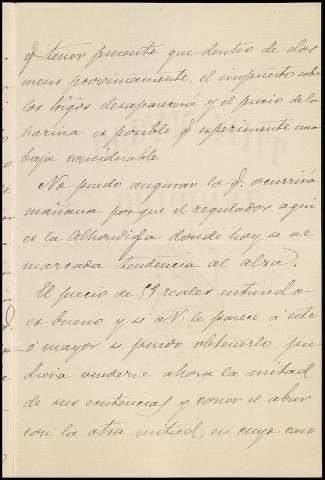 q. tener presente que dentro de dos
meses proximamente, el impuesto sobre
los trigos desaparecerá y el precio de la
harina es posible q. esperimente una
baja considerable
No puedo augurar lo q. ocurrirá
mañana porque el regulador aqui
es la Alhondiga donde hoy se ve
marcada tendencia al alza.
El precio de 59 reales
es bueno y si a V. le parece a este
ó mayor si puedo obtenerlo, pu-
diera venderse ahora la mitad
de sus existencias y correr el albur
con la otra mitad, en cuyo caso